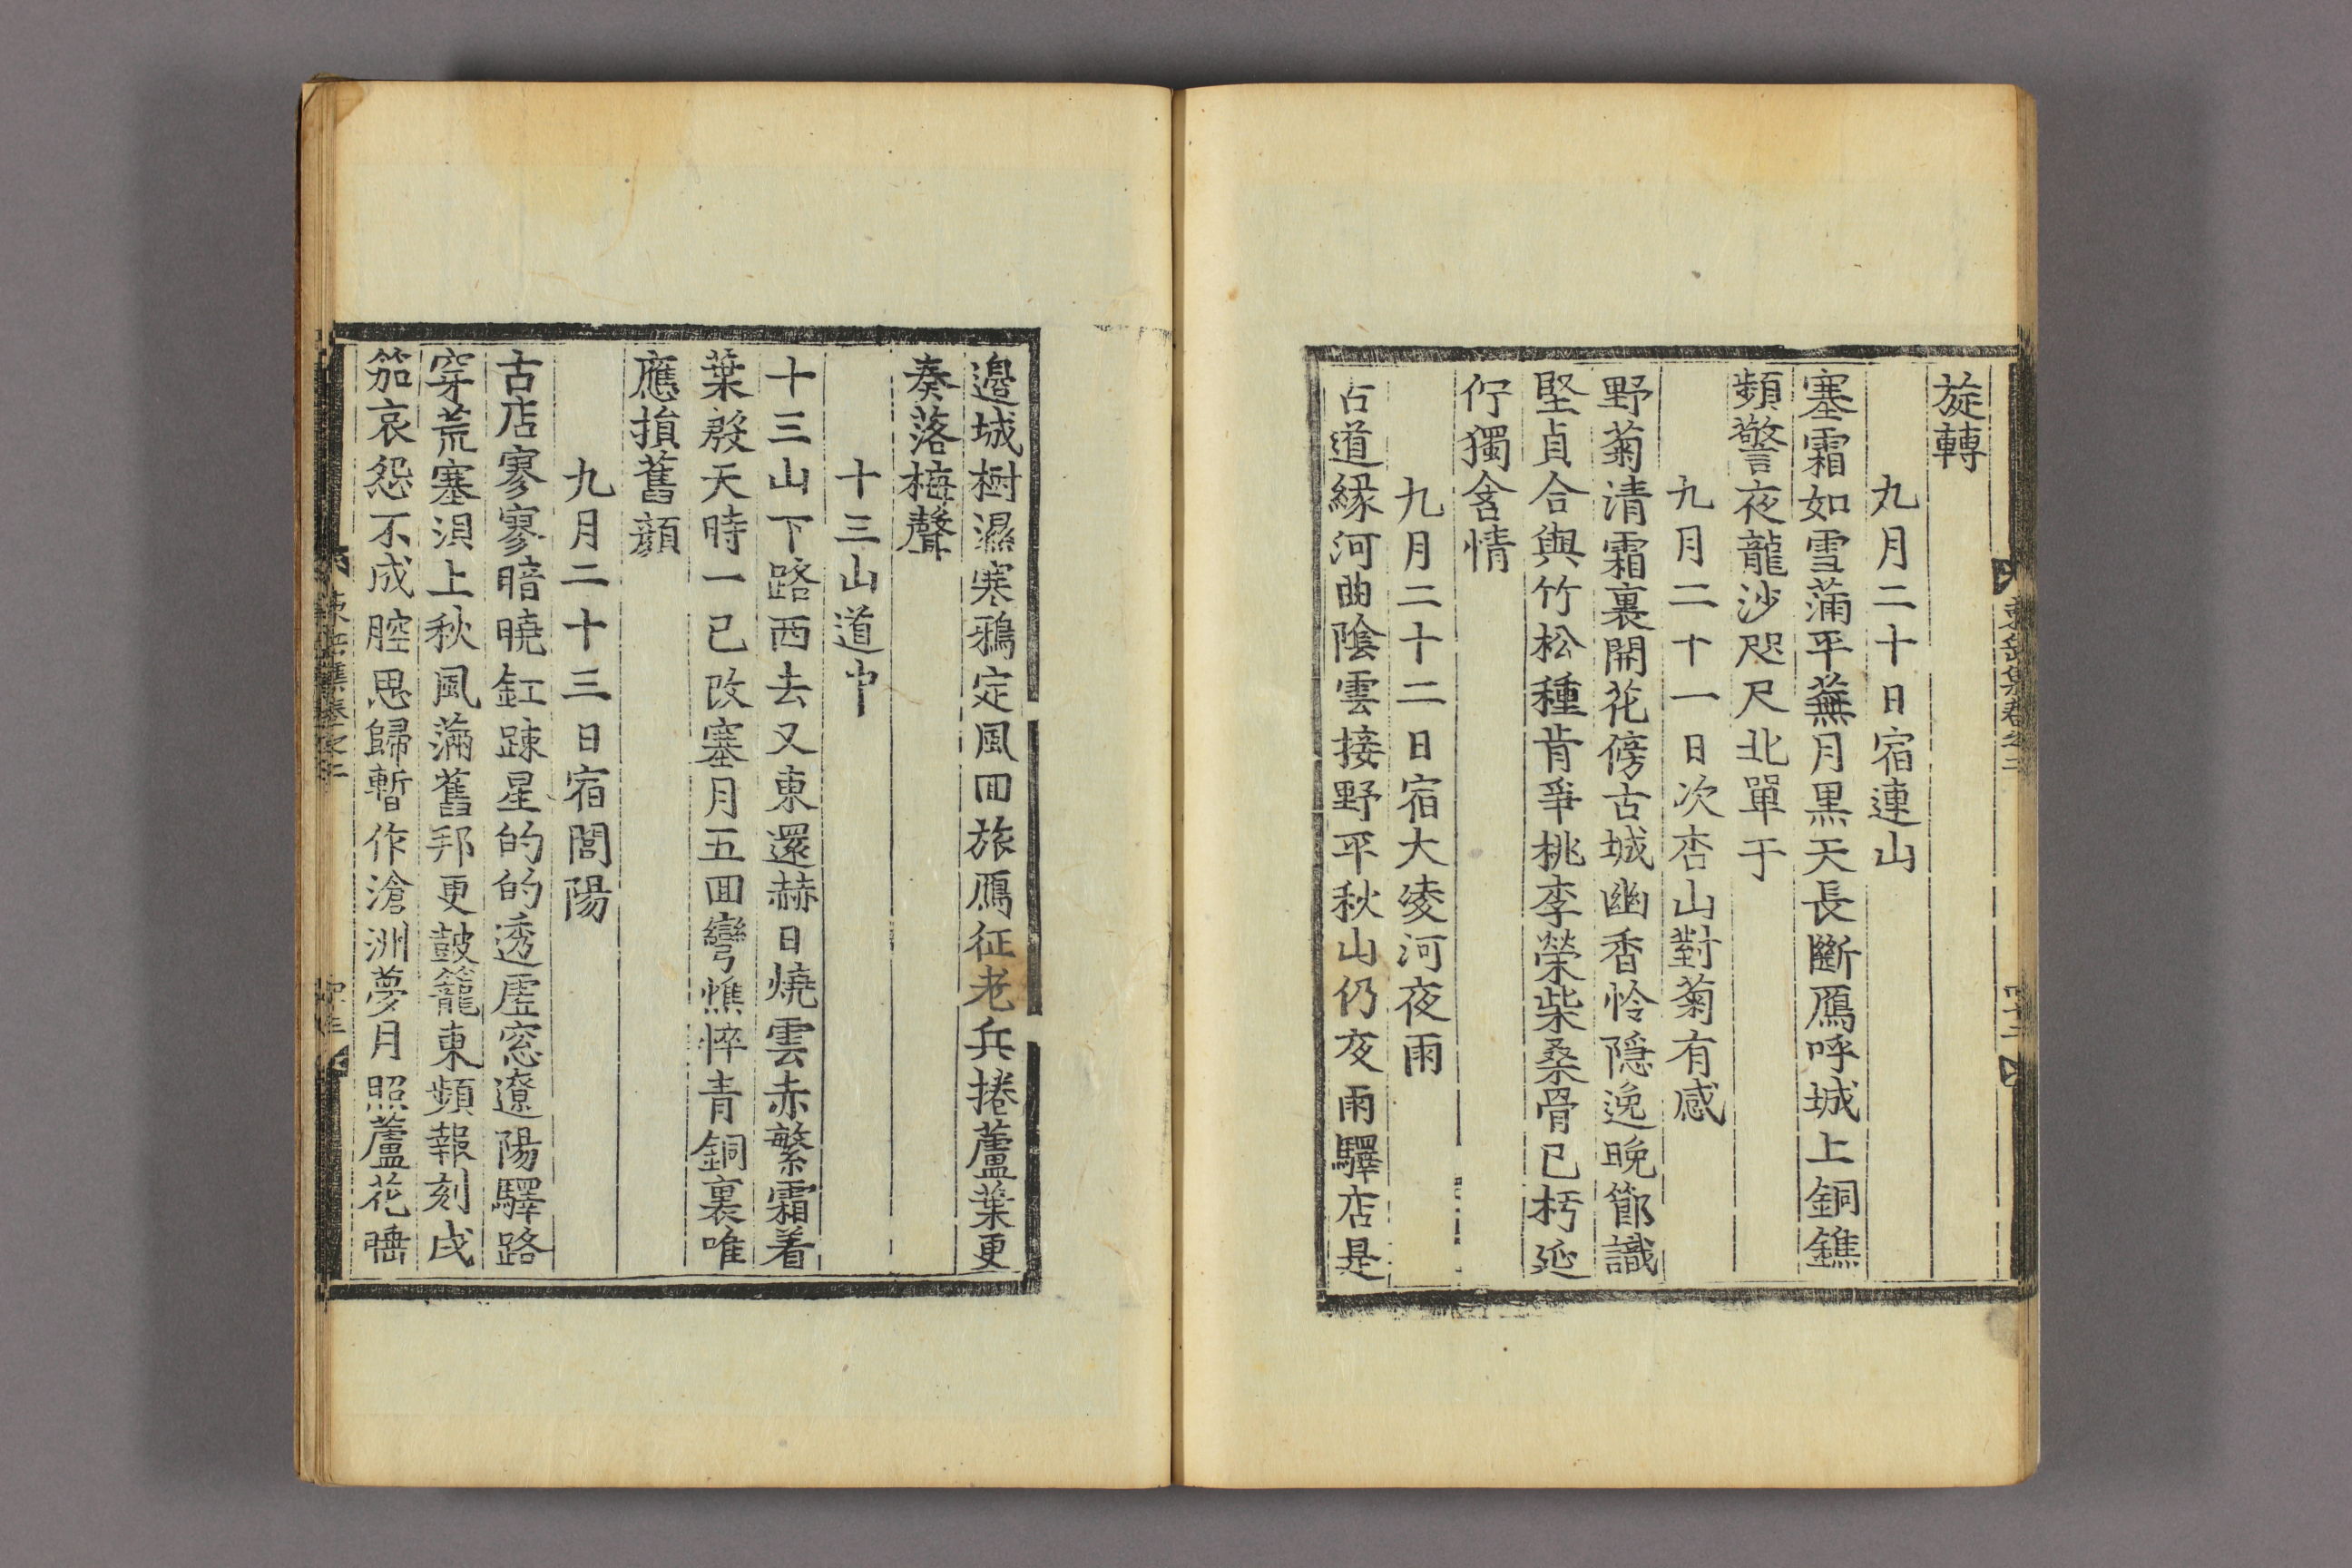 旋轉
九月二十日宿連山
塞霜如雪蒲平蕪月黑天長斷鴈呼城上銅鐎
頻警夜龍沙咫尺北單于
九月二十一日次杏山對菊有感
野菊清霜裏開花傍古城幽香怜隱逸晚節識
堅貞合與竹松種肯爭桃李榮柴桑骨已朽延
佇獨含情
九月二十二日宿大凌河夜雨
古道緣河曲陰雲接野平秋山仍夜雨驛店是
邊城樹濕寒鴉定風回旅鴈征老兵捲蘆葉更
奏落梅聲
十三山道中
十三山下路西去又東還赫日燒雲赤繁霜着
葉殷天時一已改塞月五回彎憔悴青銅裏唯
應損舊顏
九月二十三日宿閭陽
古店寥寥暗曉釭踈星的的透虛窓遼陽驛路
穿荒塞浿上秋風滿舊邦更鼓籠東頻報刻戍
笳哀怨不成腔思歸暫作滄洲夢月照蘆花